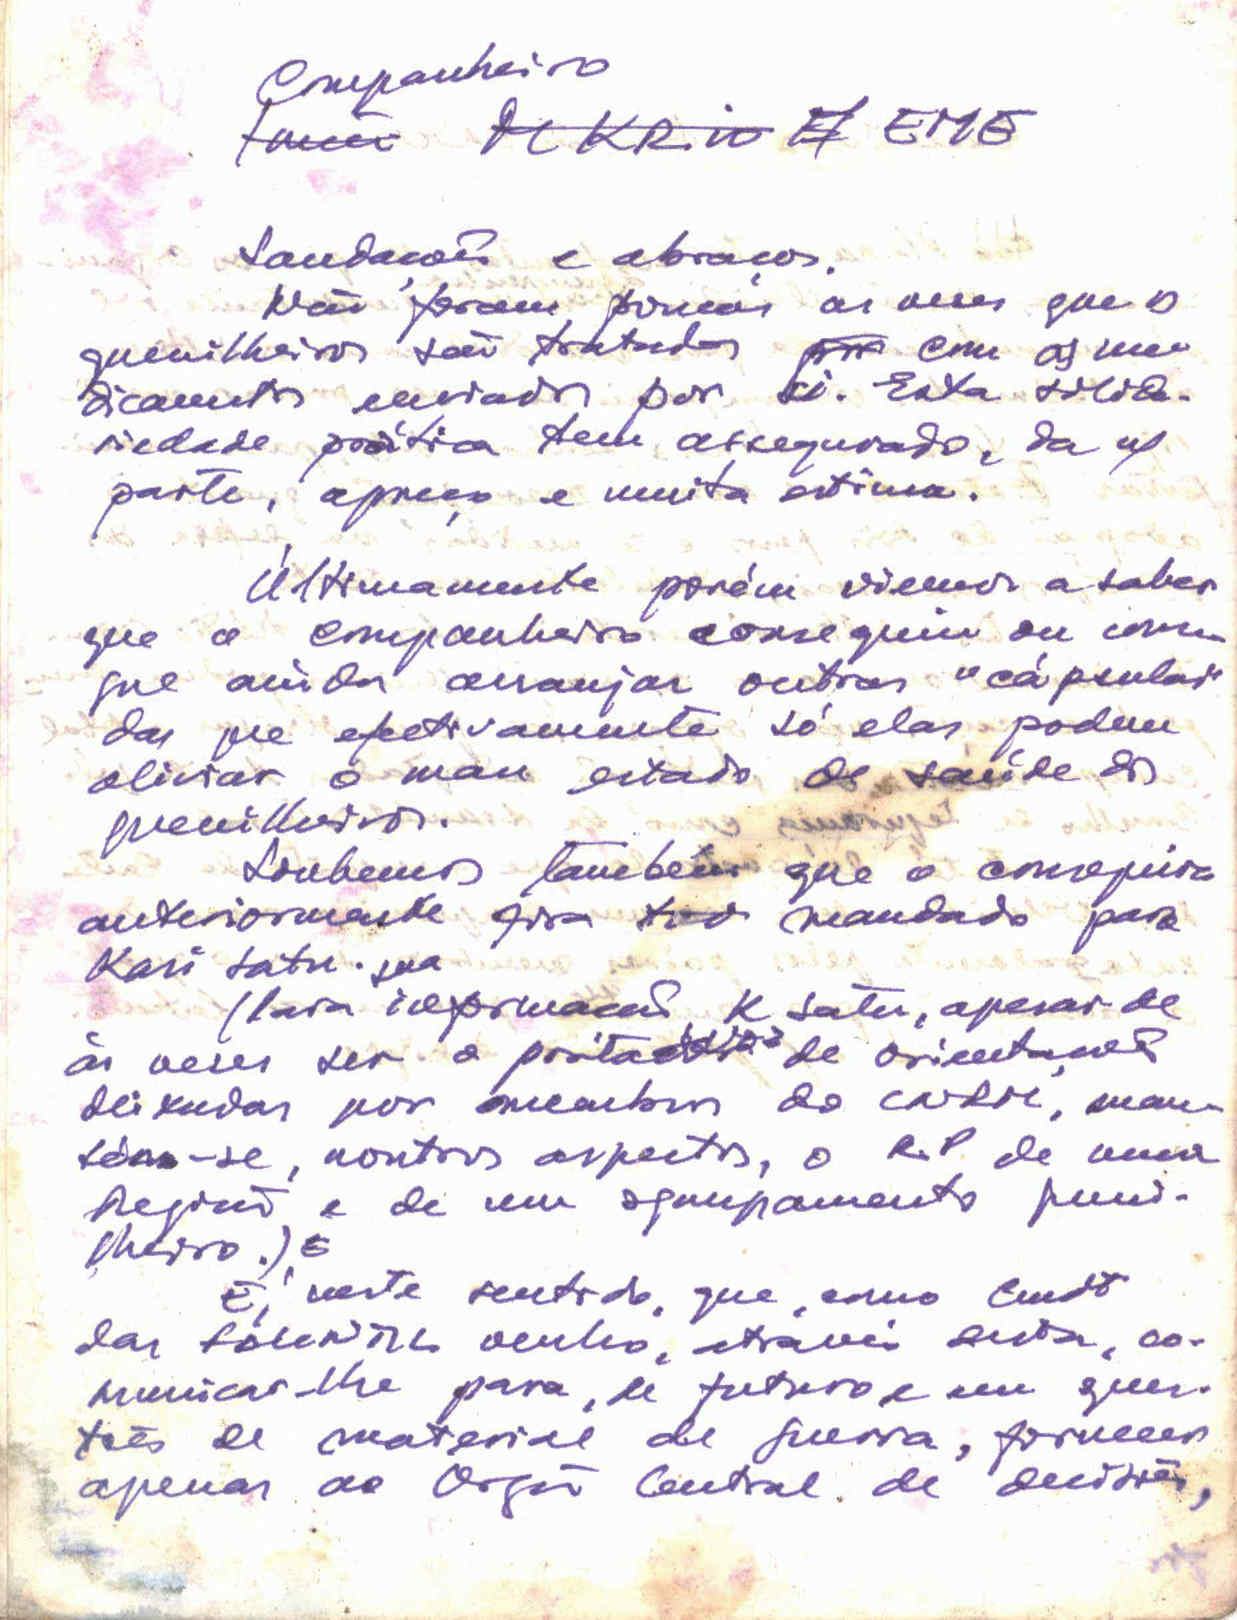 Companheiro
EME
Saudações e abraços.
Não foram poucas as vezes que o
guerrilheiros são tratados com os me
dicamentos enviados por si. Esta solida-
riedade prática tem assegurado, da n/
parte, apreço e muita estima.
Últimamente porém viemos a saber
que o companheiro conseguiu ou conse-
gue ainda arranjar outras "cápsulas"
das que efectivamente só elas podem
aliviar o mau estado de saúde dos
guerrilheiros.
Soubemos também que o conseguira
anteriormente fora mandado para
Kari Satu. sua
(Para informação K Satu, apesar de
às vezes ser o de orientações
deixadas por membros do, man-
tém-se, noutros aspectos, o R.P de uma
Região e de um agrupamento guerri-
lheiro.)
É, neste sentido, que, como Cmdt
das venho, através desta, co-
municar-lhe para, de futuro e em ques-
tões de material de guerra, fornecer
apenas ao Orgão Central de decisões,